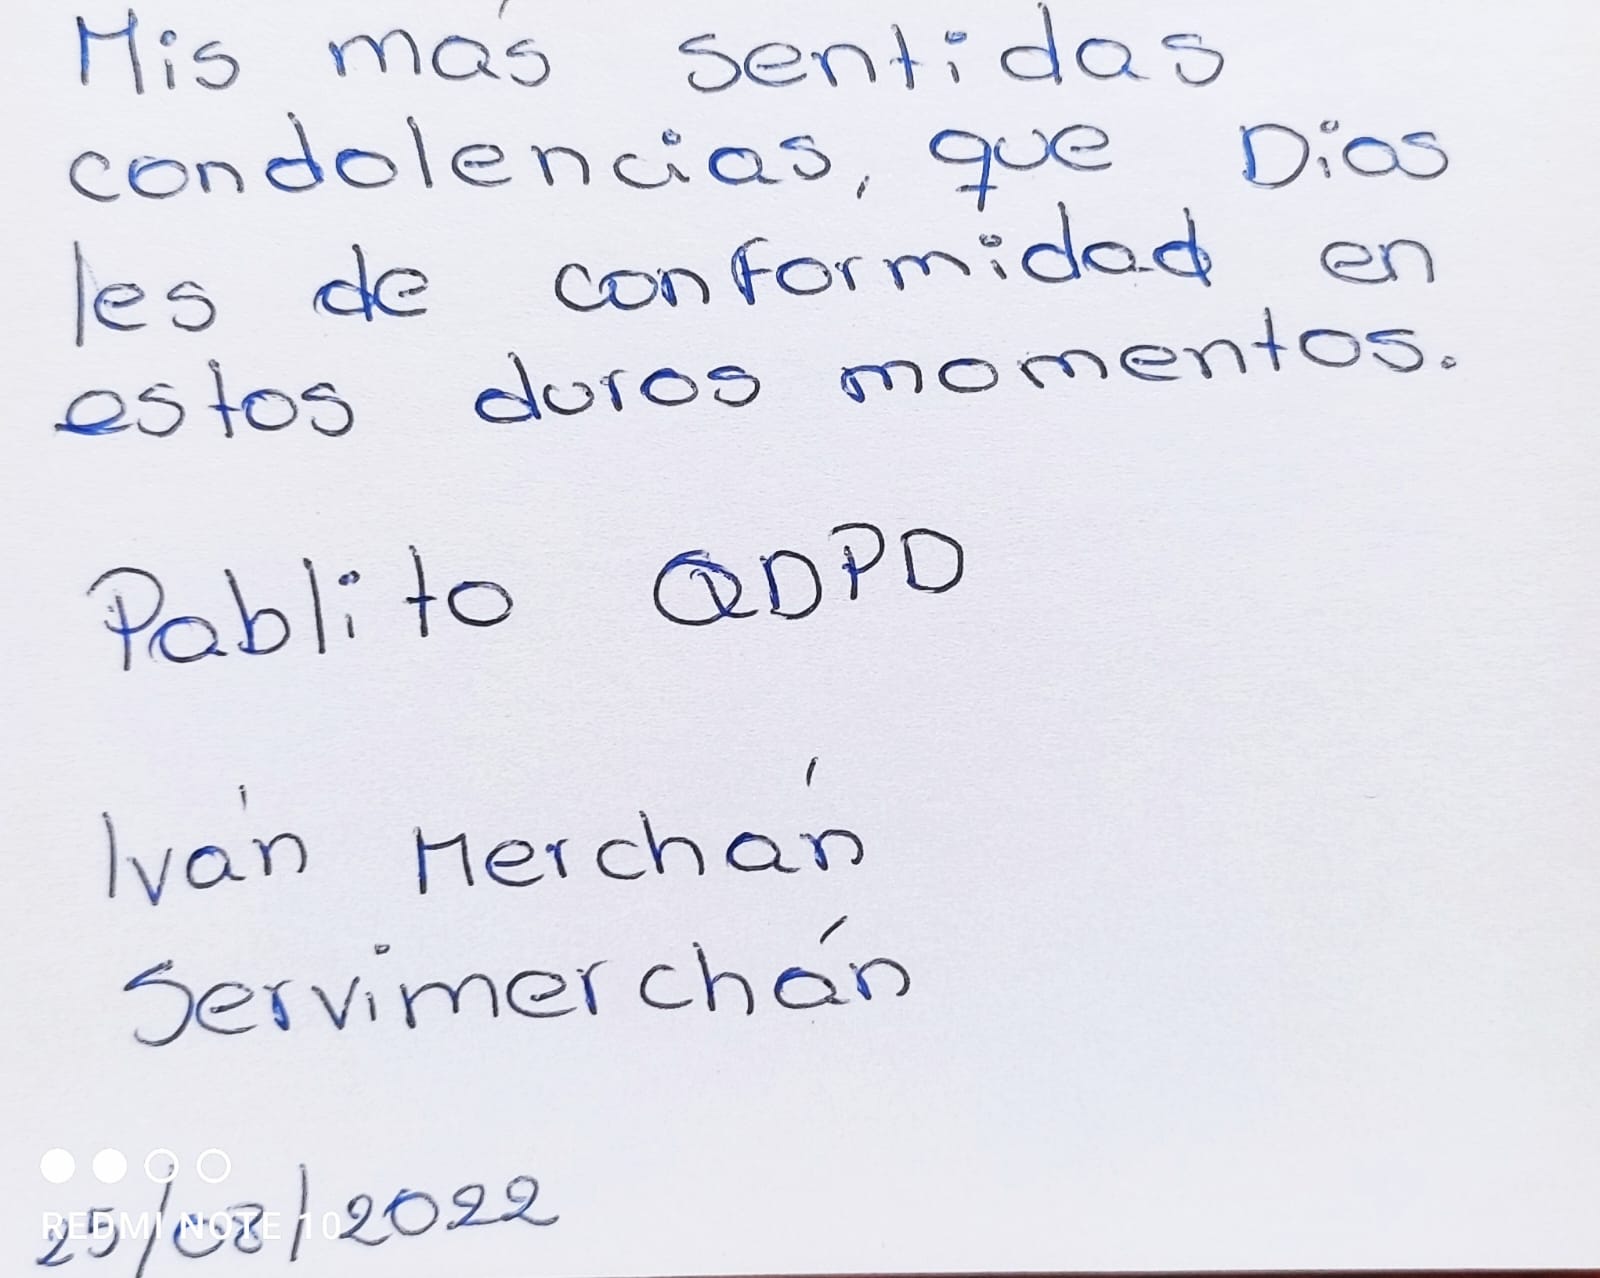 Mis más sentidas
condolencias, que Dios
les de conformidad en
estos duros momentos.
Pablito QDPD
Iván Merchán
Servimerchán
25/08/2022
REDMI NOTE 10